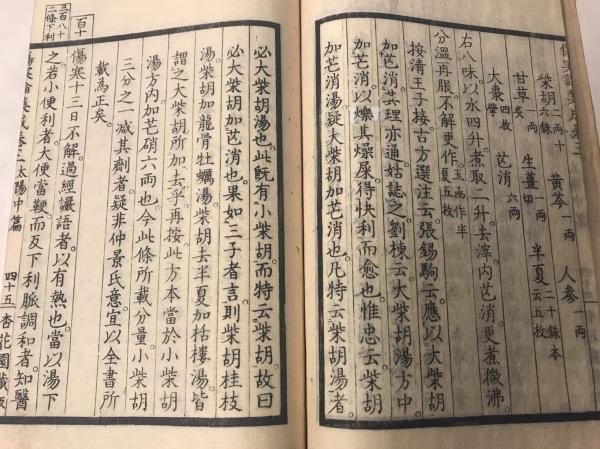 傷寒論集成卷三
柴胡二両十六銖　黄芩一両　人參一両
甘草炙一両　生薑切一両　半夏二十銖本云五枚
大棗四枚擘　芒消二両
右八味以水四升煮取二升去滓内芒消更煮微沸
分溫再服不解更作
按清王子接古方選注云張錫駒云應以大柴胡
加芒消其理亦通姑誌之劉棟云大柴胡湯方中
加芒消以燥其燥屎得快利而愈也惟忠云柴胡
加芒消湯疑大柴胡加芒消也凡特云柴胡湯者
必大柴胡湯也此既有小柴胡而特云柴胡故曰
必大柴胡加芒消也果如三子者言則柴胡桂枝
湯柴胡加龍骨牡蠣湯柴胡去半夏加栝樓湯皆
謂之大柴胡所加去乎再按此方本當於小柴胡
湯方内加芒硝六両也今此條所載分量小柴胡
三分之一減其劑者疑非仲景氏意宜以全書所
載為正矣
百十
三百八十二條下利
傷寒十三日不解過經讝語者以有熱也當以湯下
之若小便利者大便當鞕而反下利脈調和者知醫
傷寒論集成卷三太陽中篇　四十五杏花園藏版